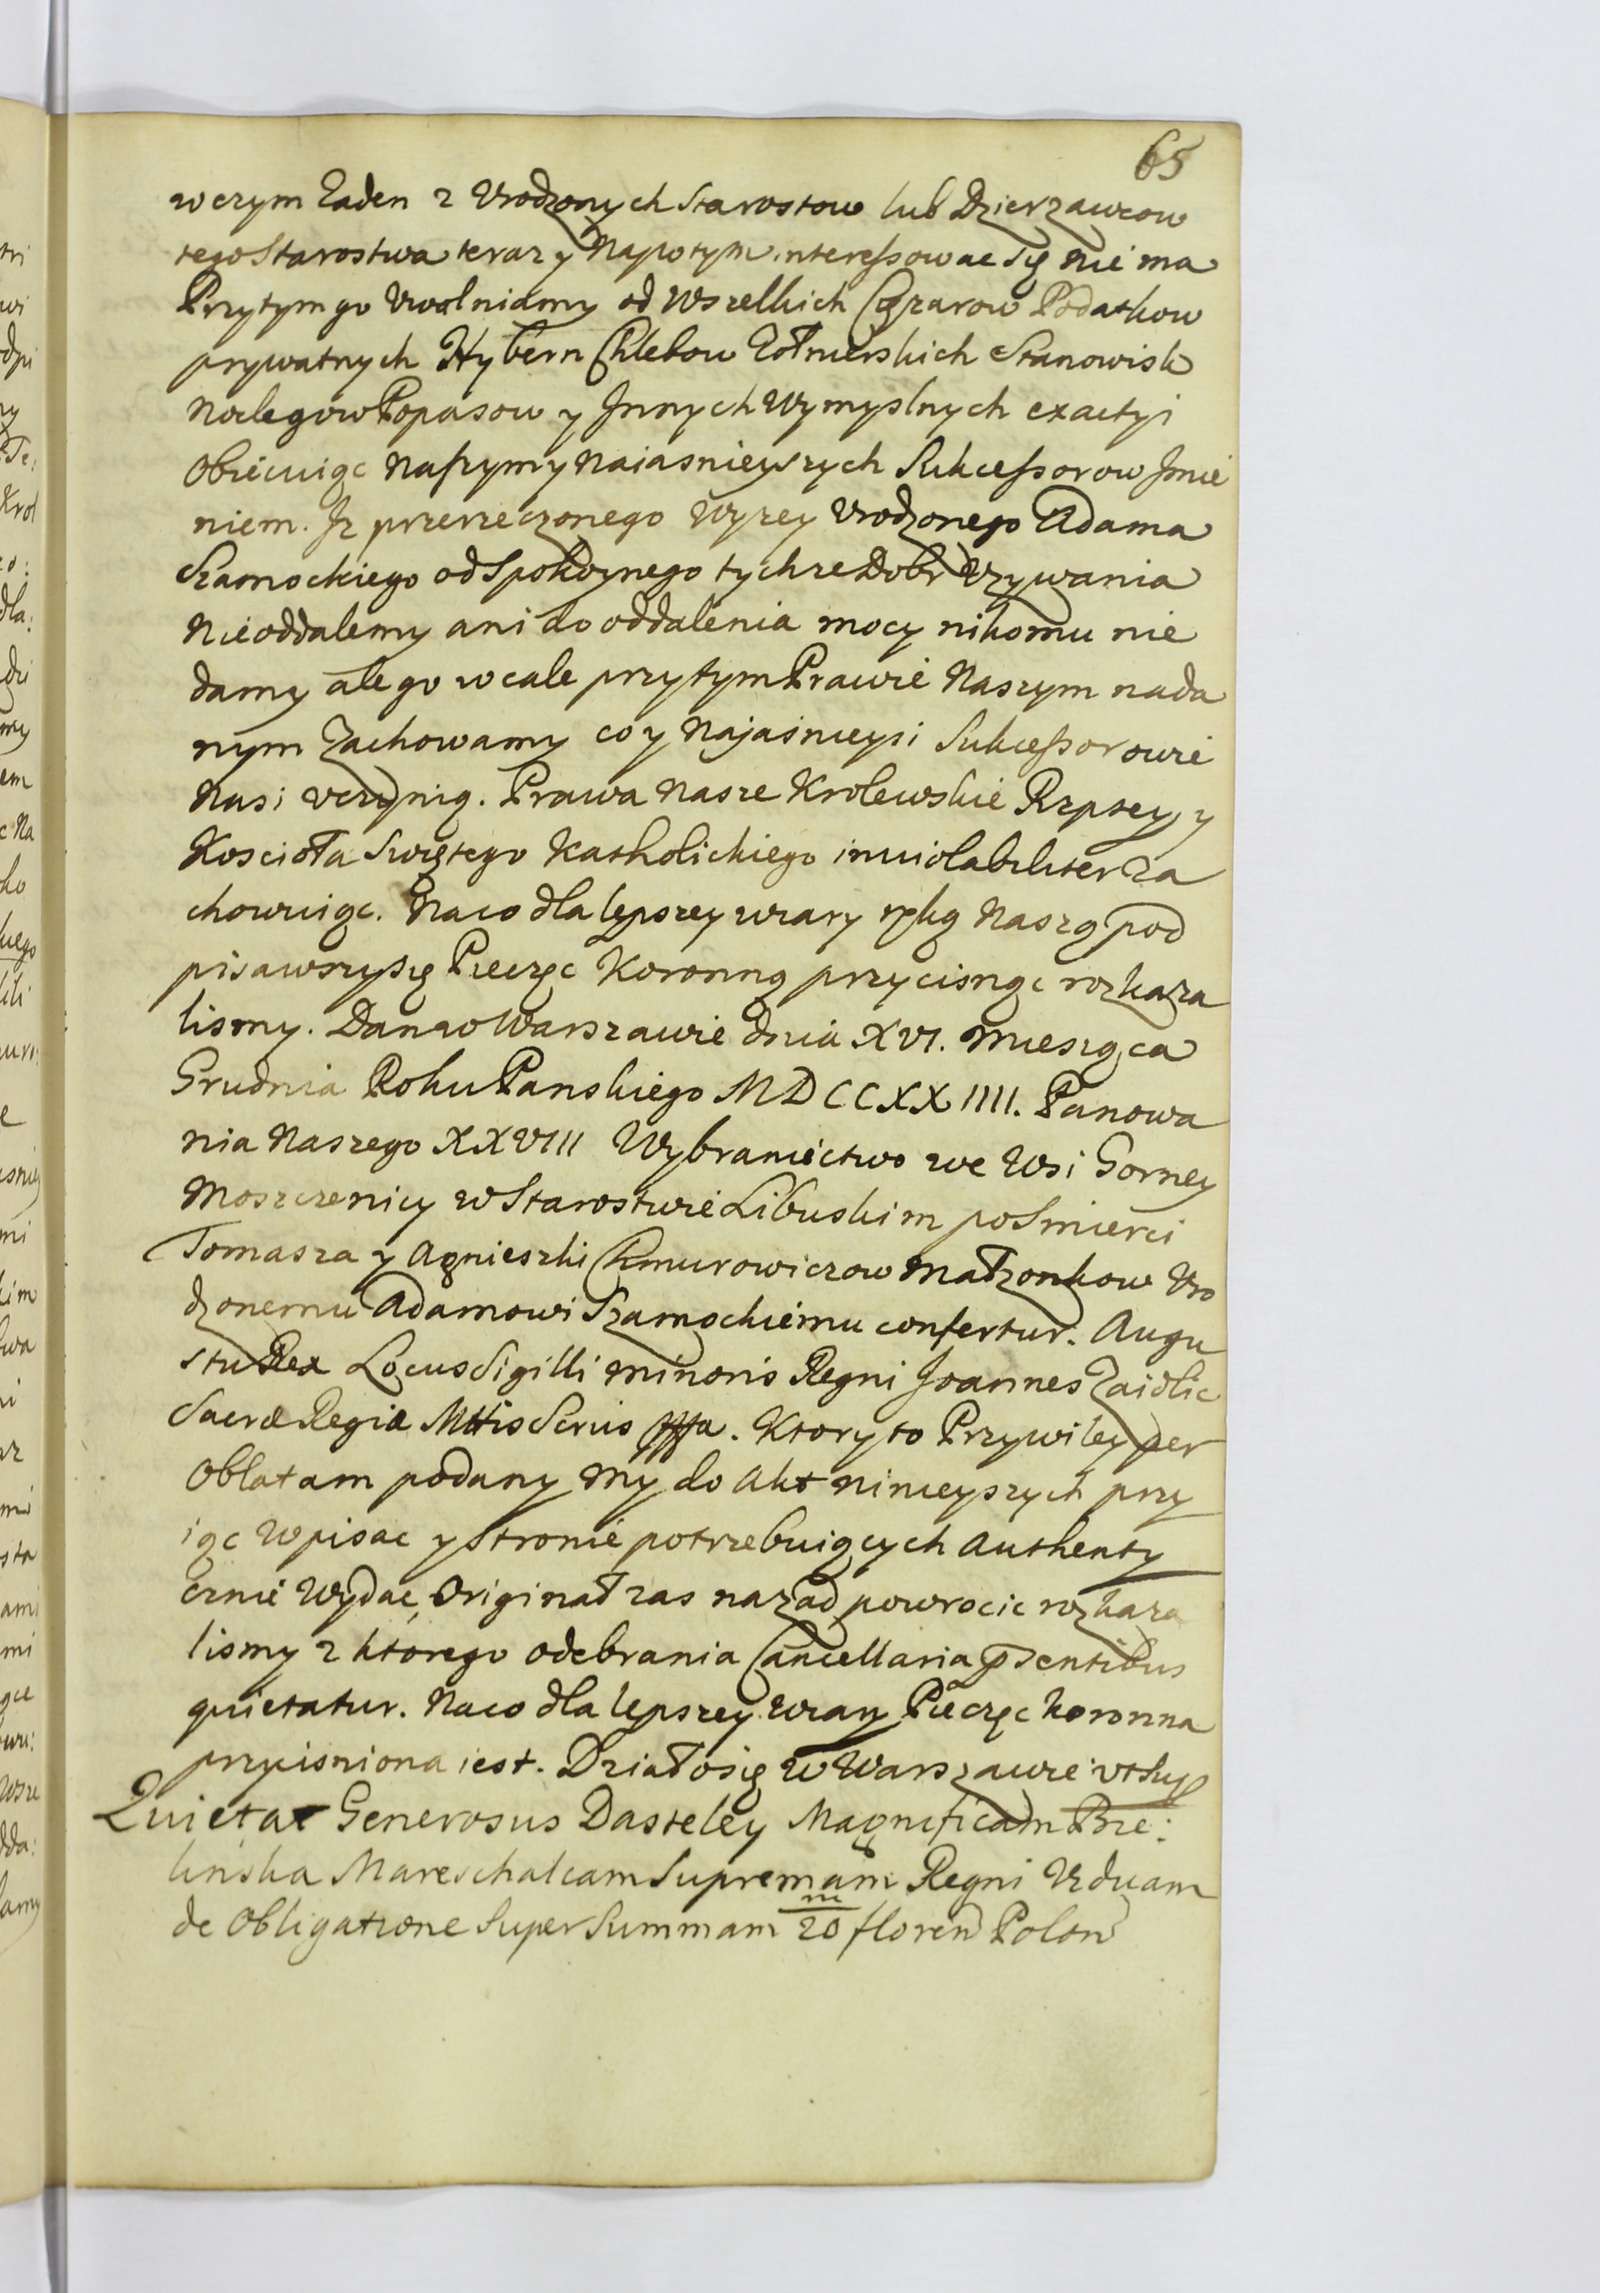 65
w czym Zaden z Vrodzonych Starostow lub Dzierzawcow
tego Starostwa teraz y Napotym interessowac się nie ma
Przytym go Vwolniamy od Wszelkich Cięzarow Podatkow
prywatnych Hybern Chlebow Zołnierskich Stanowisk
Noclegow Popasow y Jnnych Wymyslnych exactyi
Obiecuiąc Naszym y Naiasnieyszych Sukcessorow Jmie
niem. Jz przerzeczonego Wyzey Vrodzonego Adama
Szamockiego od Spokoynego tychze Dobr Vzywania
Nieoddalemy ani do oddalenia mocy nikomu nie
damy ale go wcale przytym Prawie Naszym nada
nym Zachowamy co y Najasnieysi Sukcessorowie
Nasi vczynią. Prawa Nasze Krolewskie Rzptey y
Koscioła Swiętego Katholickiego inuiolabiliter Za
chowuiąc. Naco dla lepszey wiary ręką Naszą pod
pisawszy się Pieczęc Koronną przycisnąc rozkaza
lismy. Dan w Warszawie dnia XVI. Miesząca
Grudnia Roku Panskiego MDCCXXIIII. Panowa
nia Naszego XXVIII Wybraniectwo we Wsi Gorney
Moszczenicy w Starostwie Libuskim po Smierci
Tomasza y Agnieszki Chmurowiczow Małzonkow Vro
dzonemu Adamowi Szamockiemu confertur. Augu
stu Rex Locus Sigilli minoris Regni Joannes Zaidlic
Sacræ Regiæ Mttis Scrius. Ktory to Przywiley per
Oblatam podany My do Akt ninieyszych przy
iąc Wpisac y Stronie potrzebuiących Authenty
cznie Wydac, Originał zas nazad powrocic rozkaza
lismy z ktorego odebrania Cancellaria psentibus
quietatur. Naco dla lepszey Wiary Pieczęc koronna
przycisniona iest. Działo się w Warszawie vt sup
Quietat Generosus Dasteley Magnificam Bie:
linska Mareschalcam Supremam Regni Viduam
de Obligatione Super Summam 20 m floren Polon